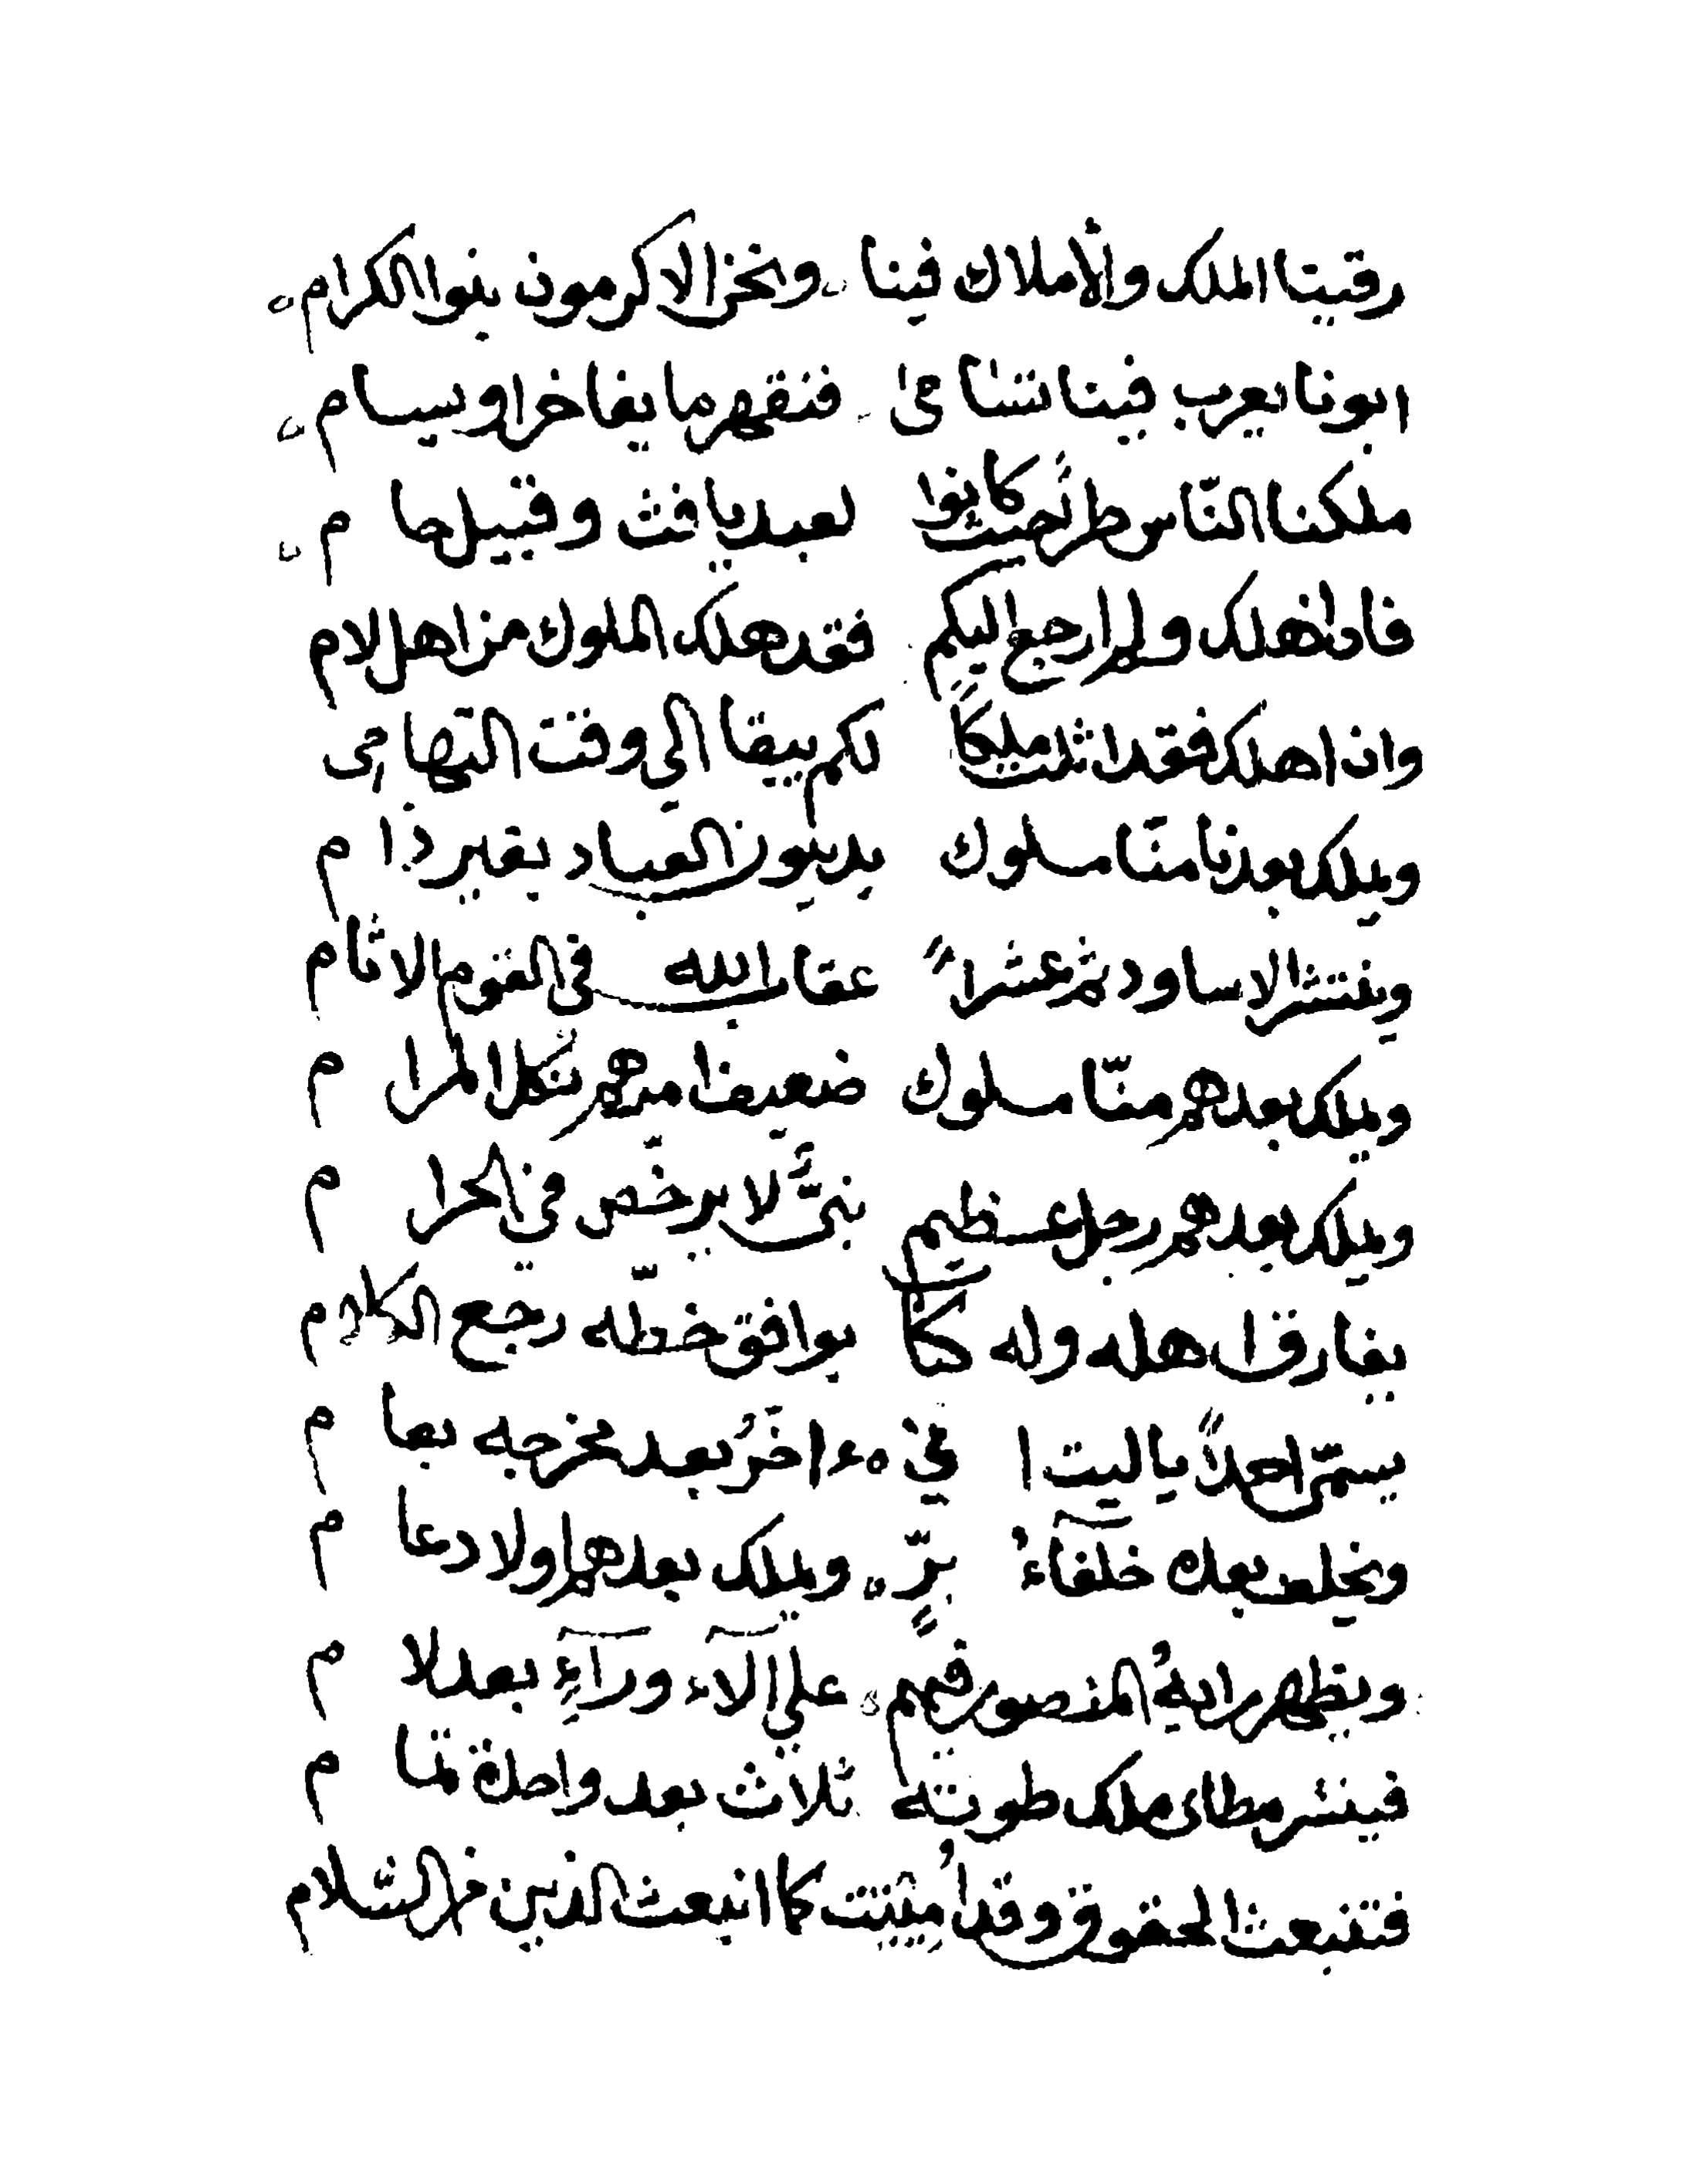 رقينا الملك والأملاك فينا ونحن الاكرمون بنوا الكرام
ابونا يعرب فينا تسامى فنقهر ما يفاخر او يسام
ملكنا الناس طرًا حيث كانوا لعبد يافث وقبيل حام
فاذا اهلك ولم ارجع اليكم فقد هلك الملوك من اهل لام
وان اهلك فقد اثلت ملكًا لكم يبقا الى وقت التهامى
ويملك بعدنا منّا ملوك يدينون العباد بغير ذام
وينتشر الاساود ثم عشراً عقاب الله في القوم الاثام
ويملك بعدهم منّا ملوك ضعيفا منهم نكل المرام
ويملك بعدهم رجل عظيم نبىّ لا يرخّص في الحرام
يفارق اهله وله كتاب يوافق خطّه رجع الكلام
يسمّى احمدًا يا ليت انى اخّر بعد مخرجه بعام
ويخلف بعده خلفآء برّ ويملك بعدهم اولاد عام
ويظهر راية المنصور فيهم على الآء ورآء بعد لام
فينشر مطاى ملك طوته ثلاث بعد واحدة تمام
فتنبعث الحقوق وقد أميتت كما انبعث الذين من السلام